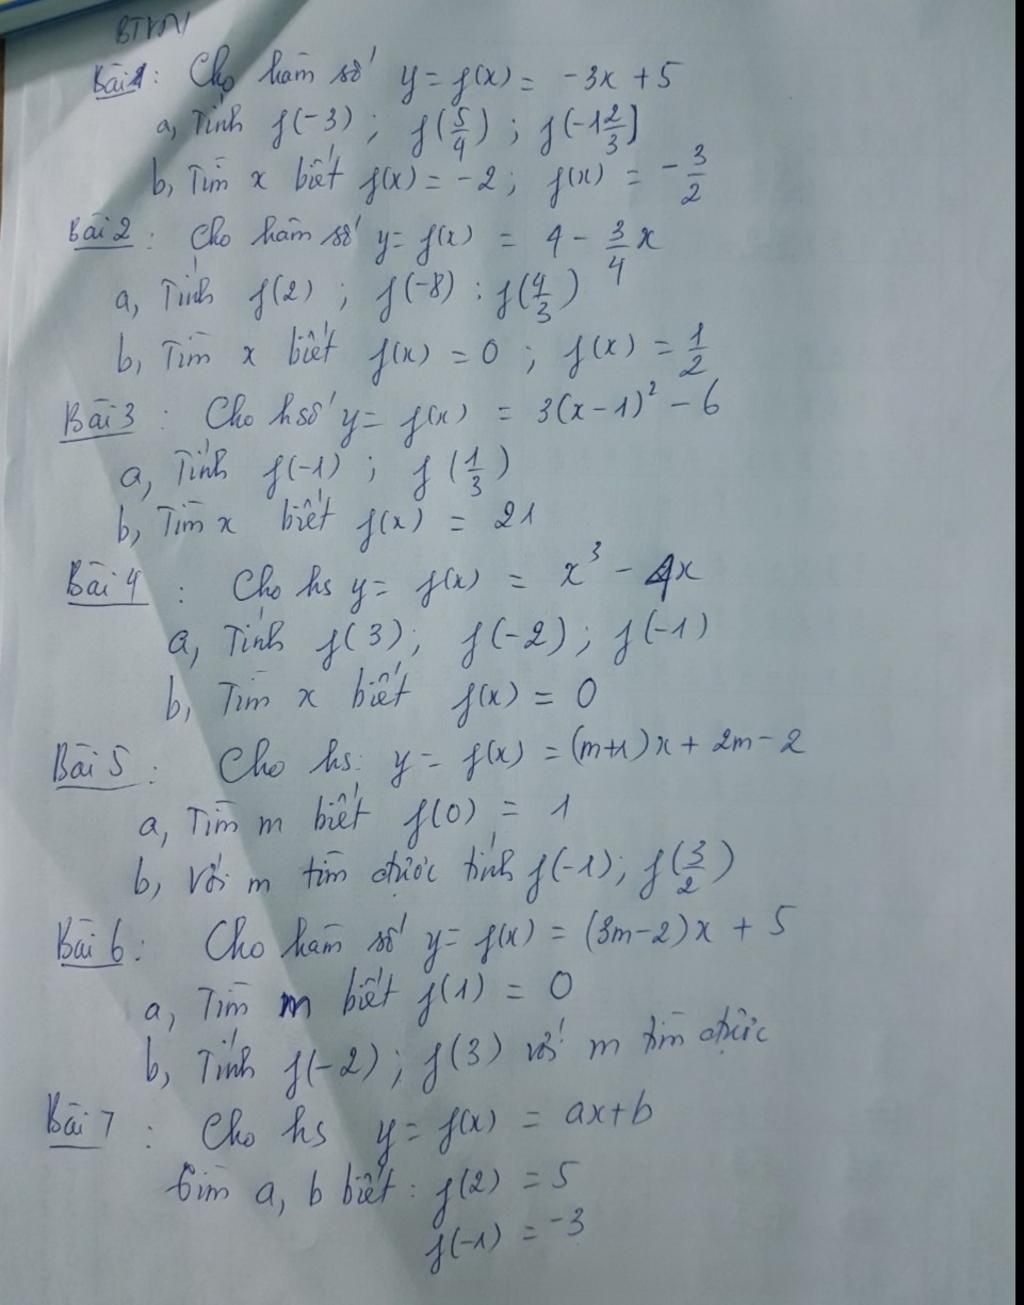 BTVN
Bài 1: Cho hàm số y = f(x) = -3x + 5
a, Tính f(-3) ; f(5/4) ; f(-1 2/3]
b, Tìm x biết f(x) = -2 ; f(x) = -3/2
Bài 2 : Cho hàm số y = f(x) = 4 - 3/4 x
a, Tính f(2) ; f(-8) : f(4/3)
b, Tìm x biết f(x) = 0 ; f(x) = 1/2
Bài 3 : Cho hsố y = f(x) = 3(x-1)² - 6
a, Tính f(-1) ; f(1/3)
b, Tìm x biết f(x) = 21
Bài 4 : Cho hs y = f(x) = x³ - 4x
a, Tính f(3) ; f(-2) ; f(-1)
b, Tìm x biết f(x) = 0
Bài 5 : Cho hs: y = f(x) = (m+1)x + 2m - 2
a, Tìm m biết f(0) = 1
b, Với m tìm được tính f(-1) ; f(3/2)
Bài 6 : Cho hàm số y = f(x) = (3m-2)x + 5
a, Tìm m biết f(1) = 0
b, Tính f(-2) ; f(3) với m tìm được
Bài 7 : Cho hs y = f(x) = ax+b
tìm a, b biết : f(2) = 5
f(-1) = -3